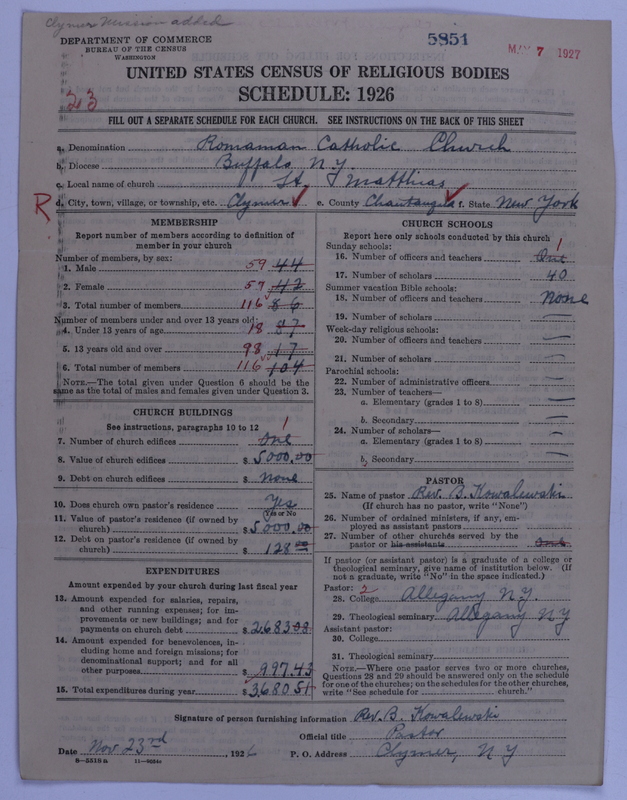 Clymer Mission added
DEPARTMENT OF COMMERCE
BUREAU OF THE CENSUS
WASHINGTON
5851
MAY 7 1927
UNITED STATES CENSUS OF RELIGIOUS BODIES
SCHEDULE: 1926
23
FILL OUT A SEPARATE SCHEDULE FOR EACH CHURCH. SEE INSTRUCTIONS ON THE BACK OF THIS SHEET
a. Denomination Romaman Catholic Church
b. Diocese Buffalo N.Y.
c. Local name of church St. Matthias
R d. City, town, village, or township, etc. Clymer e. County Chautauqua f. State New York
MEMBERSHIP
Report number of members according to definition of
member in your church
Number of members, by sex:
1. Male 59 44
2. Female 57 42
3. Total number of members 116 86
Number of members under and over 13 years old:
4. Under 13 years of age 18 87
5. 13 years old and over 98 17
6. Total number of members 116 104
NOTE.—The total given under Question 6 should be the
same as the total of males and females given under Question 3.
CHURCH BUILDINGS
See instructions, paragraphs 10 to 12
7. Number of church edifices one 1
8. Value of church edifices $ 5000.00
9. Debt on church edifices $ None
10. Does church own pastor's residence Yes
(Yes or No)
11. Value of pastor's residence (if owned by
church) $ 5000.00
12. Debt on pastor's residence (if owned by
church) $ 128.00
EXPENDITURES
Amount expended by your church during last fiscal year
13. Amount expended for salaries, repairs,
and other running expenses; for im-
provements or new buildings; and for
payments on church debt $ 2683.08
14. Amount expended for benevolences, in-
cluding home and foreign missions; for
denominational support; and for all
other purposes $ 997.43
15. Total expenditures during year $ 3680.51
CHURCH SCHOOLS
Report here only schools conducted by this church
Sunday schools:
16. Number of officers and teachers One 1
17. Number of scholars 40
Summer vacation Bible schools:
18. Number of officers and teachers None
19. Number of scholars —
Week-day religious schools:
20. Number of officers and teachers —
21. Number of scholars —
Parochial schools:
22. Number of administrative officers —
23. Number of teachers—
a. Elementary (grades 1 to 8) —
b. Secondary —
24. Number of scholars—
a. Elementary (grades 1 to 8) —
b. Secondary —
PASTOR
25. Name of pastor Rev. B. Kowalewski
(If church has no pastor, write "None")
26. Number of ordained ministers, if any, em-
ployed as assistant pastors
27. Number of other churches served by the
pastor or his assistants One
If pastor (or assistant pastor) is a graduate of a college or
theological seminary, give name of institution below. (If
not a graduate, write "No" in the space indicated.)
Pastor: 2
28. College Allegany N.Y.
29. Theological seminary Allegany N.Y
Assistant pastor:
30. College
31. Theological seminary
NOTE.—Where one pastor serves two or more churches,
Questions 28 and 29 should be answered only on the schedule
for one of the churches; on the schedules for the other churches,
write "See schedule for church."
Signature of person furnishing information Rev. B. Kowalewski
Official title Pastor
Date Nov 23rd, 1926 P. O. Address Clymer, N Y
8—5518 a 11—9034c